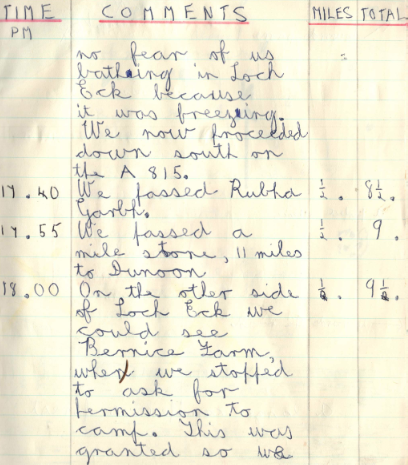 TIME COMMENTS MILES TOTAL
PM
no fear of us
bathing in Loch
Eck because
it was freezing.
We now proceeded
down south on
the A 815.
17.40 We passed Rubha ½. 8½.
Garbh.
17.55 We passed a ½. 9.
mile stone, 11 miles
to Dunoon
18.00 On the other side ½. 9½.
of Loch Eck we
could see
Bernice Farm,
when we stopped
to ask for
permission to
camp. This was
granted so we